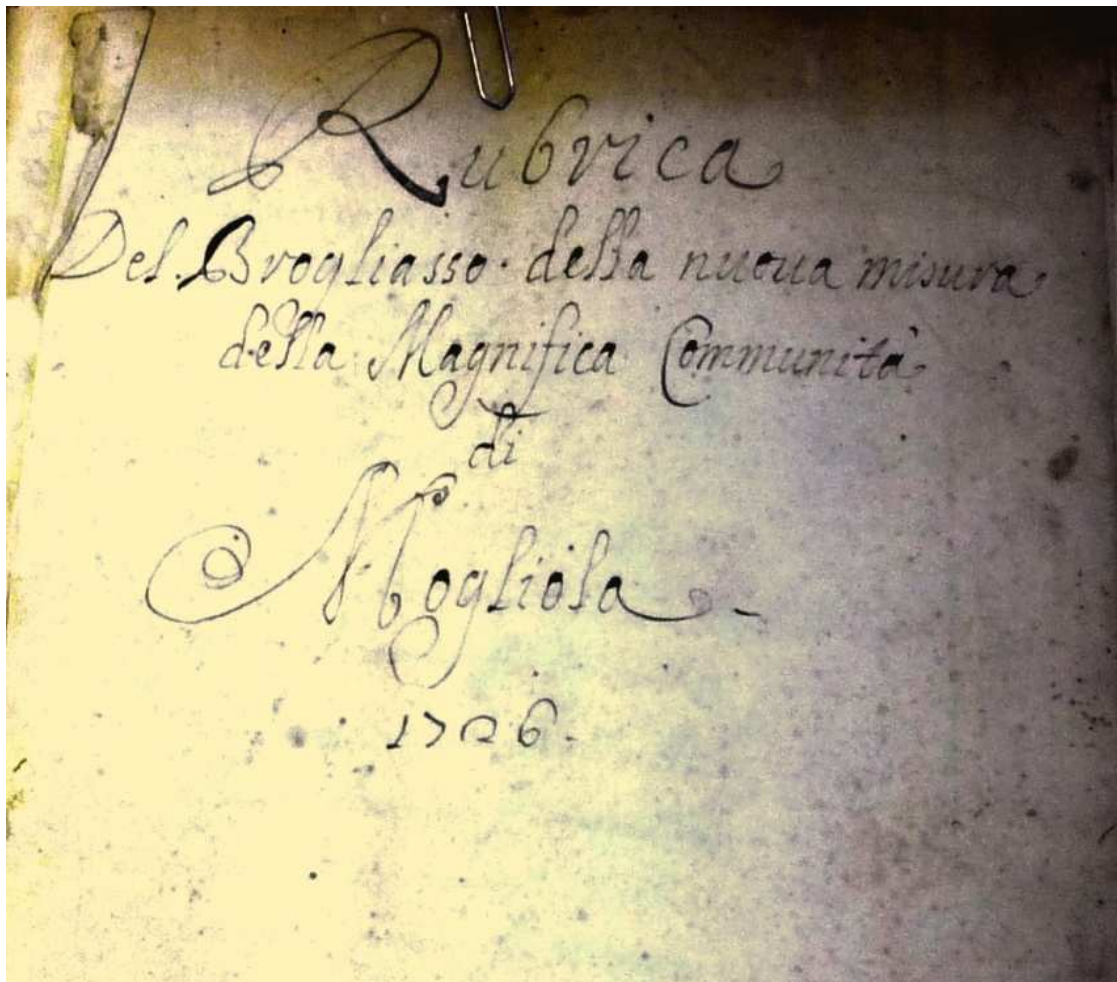 Rubrica
Del Brogliasso della nuoua misura
della Magnifica Communità
di
Mogliola
1706.